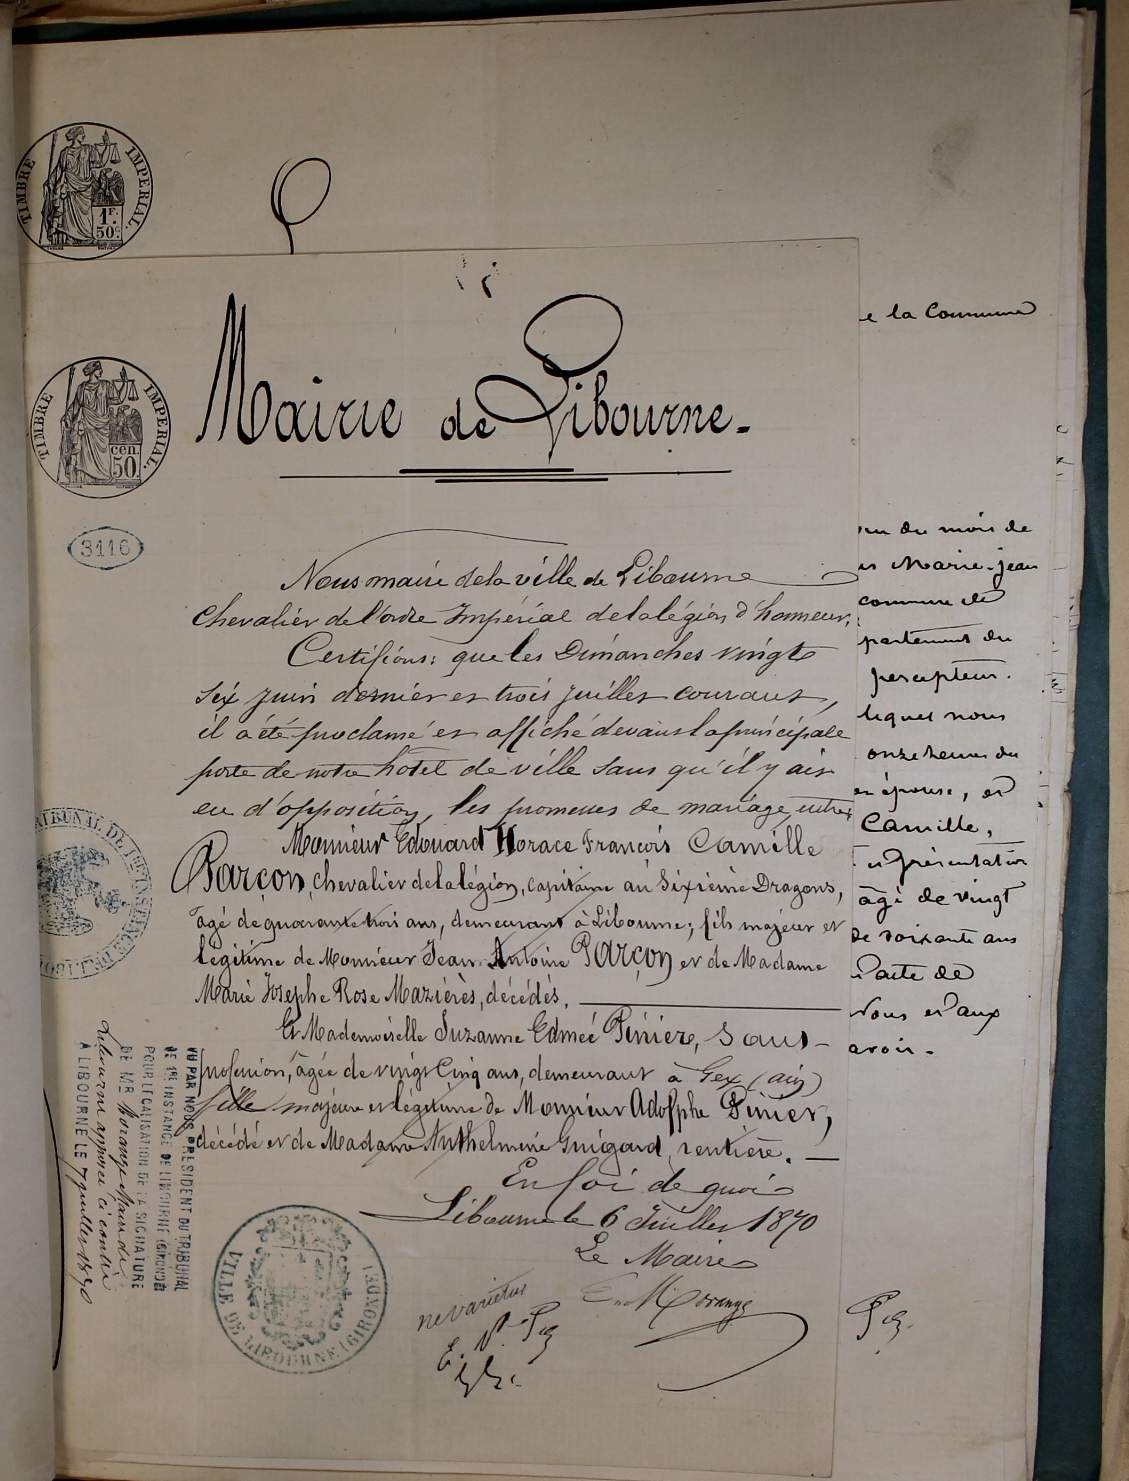 TIMBRE IMPERIAL
1F. 50c.
e la Commune
Mairie de Libourne.
TIMBRE IMPERIAL.
cen. 50
3116
Nous maire de la ville de Libourne
Chevalier de l'ordre Impérial de la légion d'honneur,
Certifions: que les Dimanches vingt
six juin dernier et trois juillet courant,
il a été proclamé et affiché devant la principale
porte de notre hôtel de ville sans qu'il y ait
eu d'opposition, les promesses de mariage entre
Monsieur Edouard Horace François Camille
Parçon, chevalier de la légion, capitaine au Sixième Dragons,
âgé de quarante trois ans, demeurant à Libourne; fils majeur et
légitime de Monsieur Jean Antoine Parçon et de Madame
Marie Josephe Rose Mazières, décédés.
Et Mademoiselle Suzanne Edmée Pinier, sans
profession, âgée de vingt cinq ans, demeurant à Gex (ain)
fille majeure et légitime de Monsieur Adolphe Pinier,
décédé et de Madame Anthelmine Guigard, rentière.
En foi de quoi
Libourne le 6 Juillet 1870
Le Maire
Morange
ne varietur
VILLE DE LIBOURNE (GIRONDE)
TRIBUNAL DE 1re INSTANCE
VU PAR NOUS PRESIDENT DU TRIBUNAL
DE 1re INSTANCE DE LIBOURNE (GIRONDE)
POUR LEGALISATION DE LA SIGNATURE
DE MR Morange Maire de
Libourne apposée ci contre
A LIBOURNE LE 7 juillet 1870
du mois de
Marie-jean
commune de
partement du
percepteur.
lequel nous
onze heures du
épouse, et
Camille,
présentation
âgé de vingt
de soixante ans
l'acte de
Nous et aux
avoir.